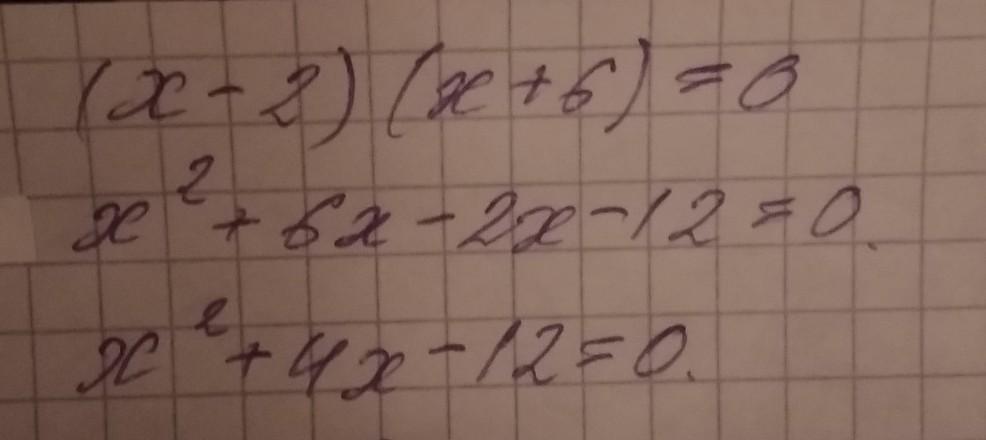 (x - 2) (x + 6) = 0
x² + 6x - 2x - 12 = 0.
x² + 4x - 12 = 0.